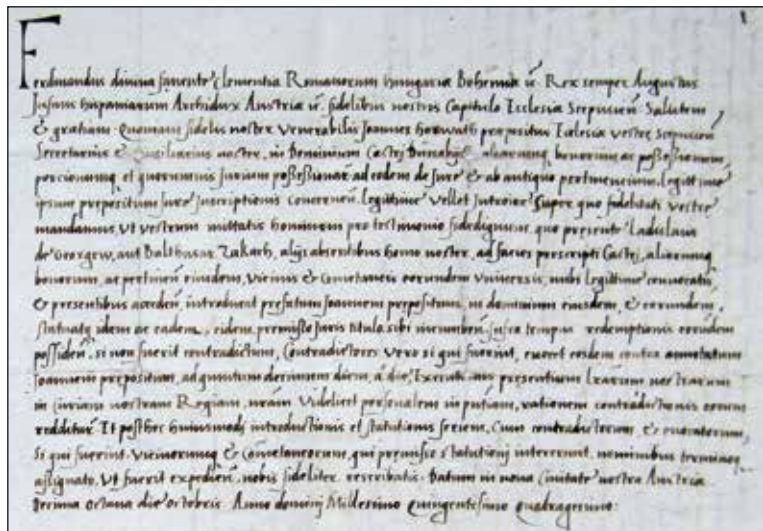 Ferdinandus divina favente clementia Romanorum Hungariæ Bohemiæ Rex semper Augustus
Infans Hispaniarum Archidux Austriæ fidelibus nostris Capitulo Ecclesiæ Scepusien Salutem
& gratiam. Quoniam fidelis noster Venerabilis Joannes Horwath prepositus Ecclesiæ vestrę Scepusien
Secretarius & Consiliarius noster, in dominium Castri aliarumq bonorum ac possessionum
porcionumq et quorumvis jurium possessionar ad eodem de jure & ab antiquo pertinencium legittime
ipsum prepositum jure inscriptionis concernen legittime vellet introire Super quo fidelitati vestrę
mandamus, Ut vestrum mittatis hominem pro testimonio fidedignum, quo presente Ladislaus
de Georgew, aut Balthasar Zakach, alijs absentibus homo noster, ad facies prescripti Castri, aliorumq
bonorum, ac pertinen eiusdem, Vicinis & Cometaneis eorundem Universis, inibi legittime convocatis
& presentibus acceden, introducat prefatum Joannem prepositum, in dominium eiusdem, & eorundem,
statuatq idem ac eadem, eidem, premisso juris titulo sibi incumben, infra tempus redemptionis eorundem
possiden, si non fuerit contradictum, Contradictores vero si qui fuerint, evocet eosdem contra annotatum
Joannem prepositum, ad quintum decimum diem, a die Executionis presentium lrarum nostrarum
in Curiam nostram Regiam, nram Videlicet personalem in pntiam, rationem contradictionis eorum
redditur. Et posthec huiusmodi introductionis et statutionis seriem, Cum contradictorum, & evocatorum,
Si qui fuerint, Vicinorumq & Cometaneorum, qui premisse statutioni intererunt, nominibus terminoq
assignato, Ut fuerit expedien, nobis fideliter rescribatis. Datum in nova Civitate nostra Austriæ
Decima octava die octobris. Anno domini Millesimo Quingentesimo Quadragesimo: